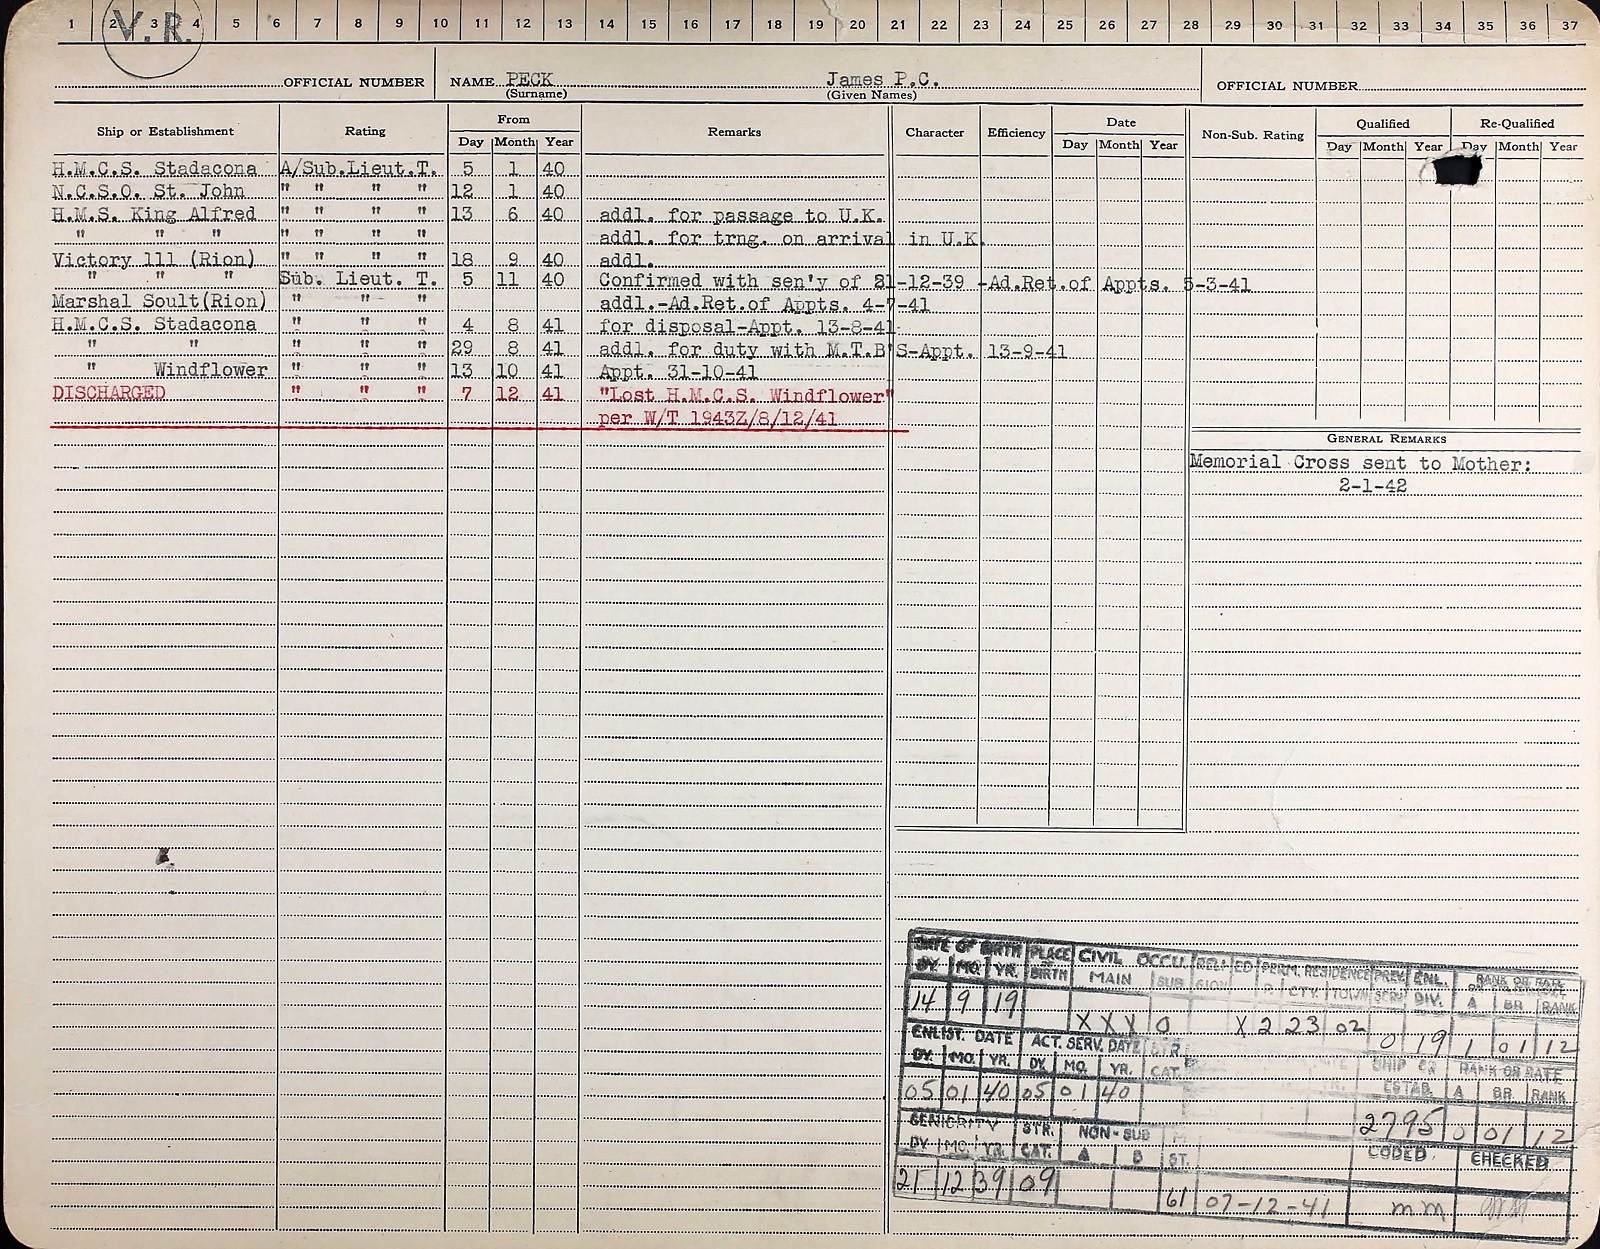 1 2 3 4 5 6 7 8 9 10 11 12 13 14 15 16 17 18 19 20 21 22 23 24 25 26 27 28 29 30 31 32 33 34 35 36 37
V.R.
OFFICIAL NUMBER NAME PECK James P.C. OFFICIAL NUMBER
(Surname) (Given Names)
Ship or Establishment Rating From Remarks Character Efficiency Date Non-Sub. Rating Qualified Re-Qualified
Day Month Year Day Month Year Day Month Year Day Month Year
H.M.C.S. Stadacona A/Sub.Lieut.T. 5 1 40
N.C.S.O. St. John " " " " 12 1 40
H.M.S. King Alfred " " " " 13 6 40 addl. for passage to U.K.
" " " " " " " addl. for trng. on arrival in U.K.
Victory 111 (Rion) " " " " 18 9 40 addl.
" " " Sub. Lieut. T. 5 11 40 Confirmed with sen'y of 21-12-39 -Ad.Ret.of Appts. 5-3-41
Marshal Soult(Rion) " " " addl.-Ad.Ret.of Appts. 4-7-41
H.M.C.S. Stadacona " " " 4 8 41 for disposal-Appt. 13-8-41
" " " " " 29 8 41 addl. for duty with M.T.B'S-Appt. 13-9-41
" Windflower " " " 13 10 41 Appt. 31-10-41
DISCHARGED " " " 7 12 41 "Lost H.M.C.S. Windflower"
per W/T 1943Z/8/12/41
GENERAL REMARKS
Memorial Cross sent to Mother:
2-1-42
DATE OF BIRTH PLACE OF BIRTH CIVIL OCCU. RELIGION ED PERM. RESIDENCE PREV. SERV. ENL. DIV. RANK OR RATE
DY. MO. YR. MAIN SUB CTY. TOWN A BR RANK
14 9 19 X X X 0 X 2 23 02 0 19 1 01 12
ENLIST. DATE ACT. SERV. DATE STR. CAT. SHIP OR ESTAB. RANK OR RATE
DY. MO. YR. DY. MO. YR. A BR. RANK
05 01 40 05 01 40 2795 0 01 12
SENIORITY STR. CAT. NON-SUB ST. CODED CHECKED
DY. MO. YR. A B
21 12 39 09 61 07-12-41 mm